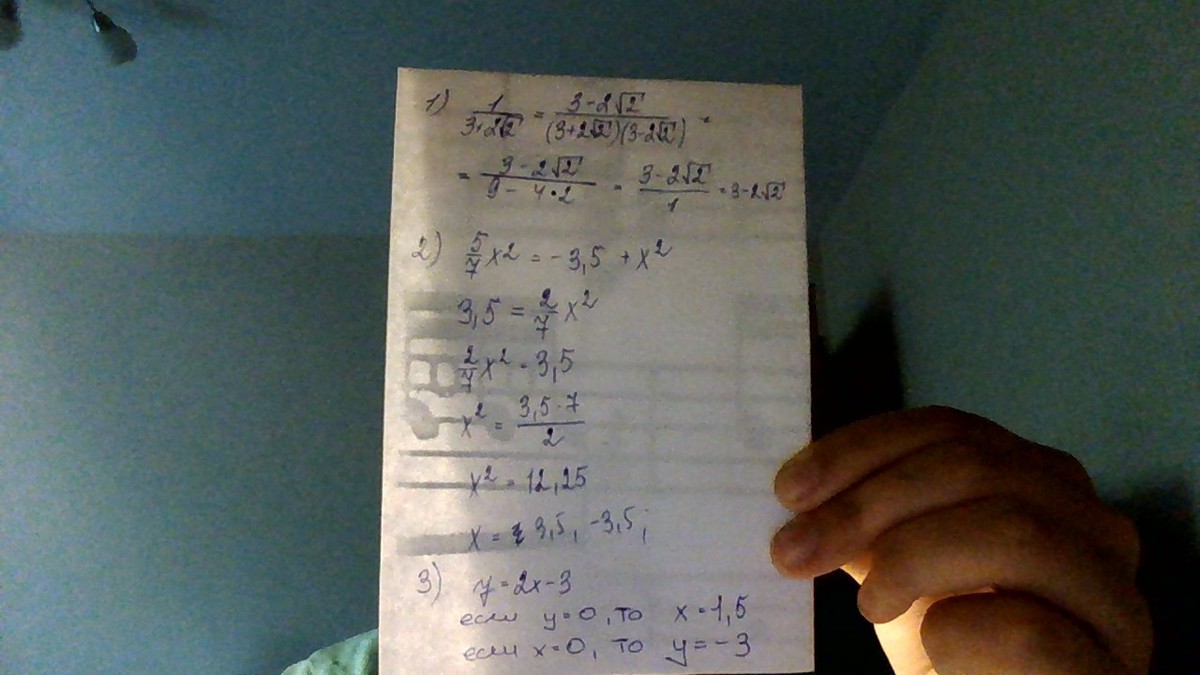 1) 1/(3+2√2) = (3-2√2)/((3+2√2)(3-2√2)) =
= (3-2√2)/(9-4·2) = (3-2√2)/1 = 3-2√2
2) 5/7 x² = -3,5 + x²
3,5 = 2/7 x²
2/7 x² = 3,5
x² = (3,5·7)/2
x² = 12,25
x = 3,5; -3,5;
3) y = 2x-3
если y=0, то x=1,5
если x=0, то y=-3